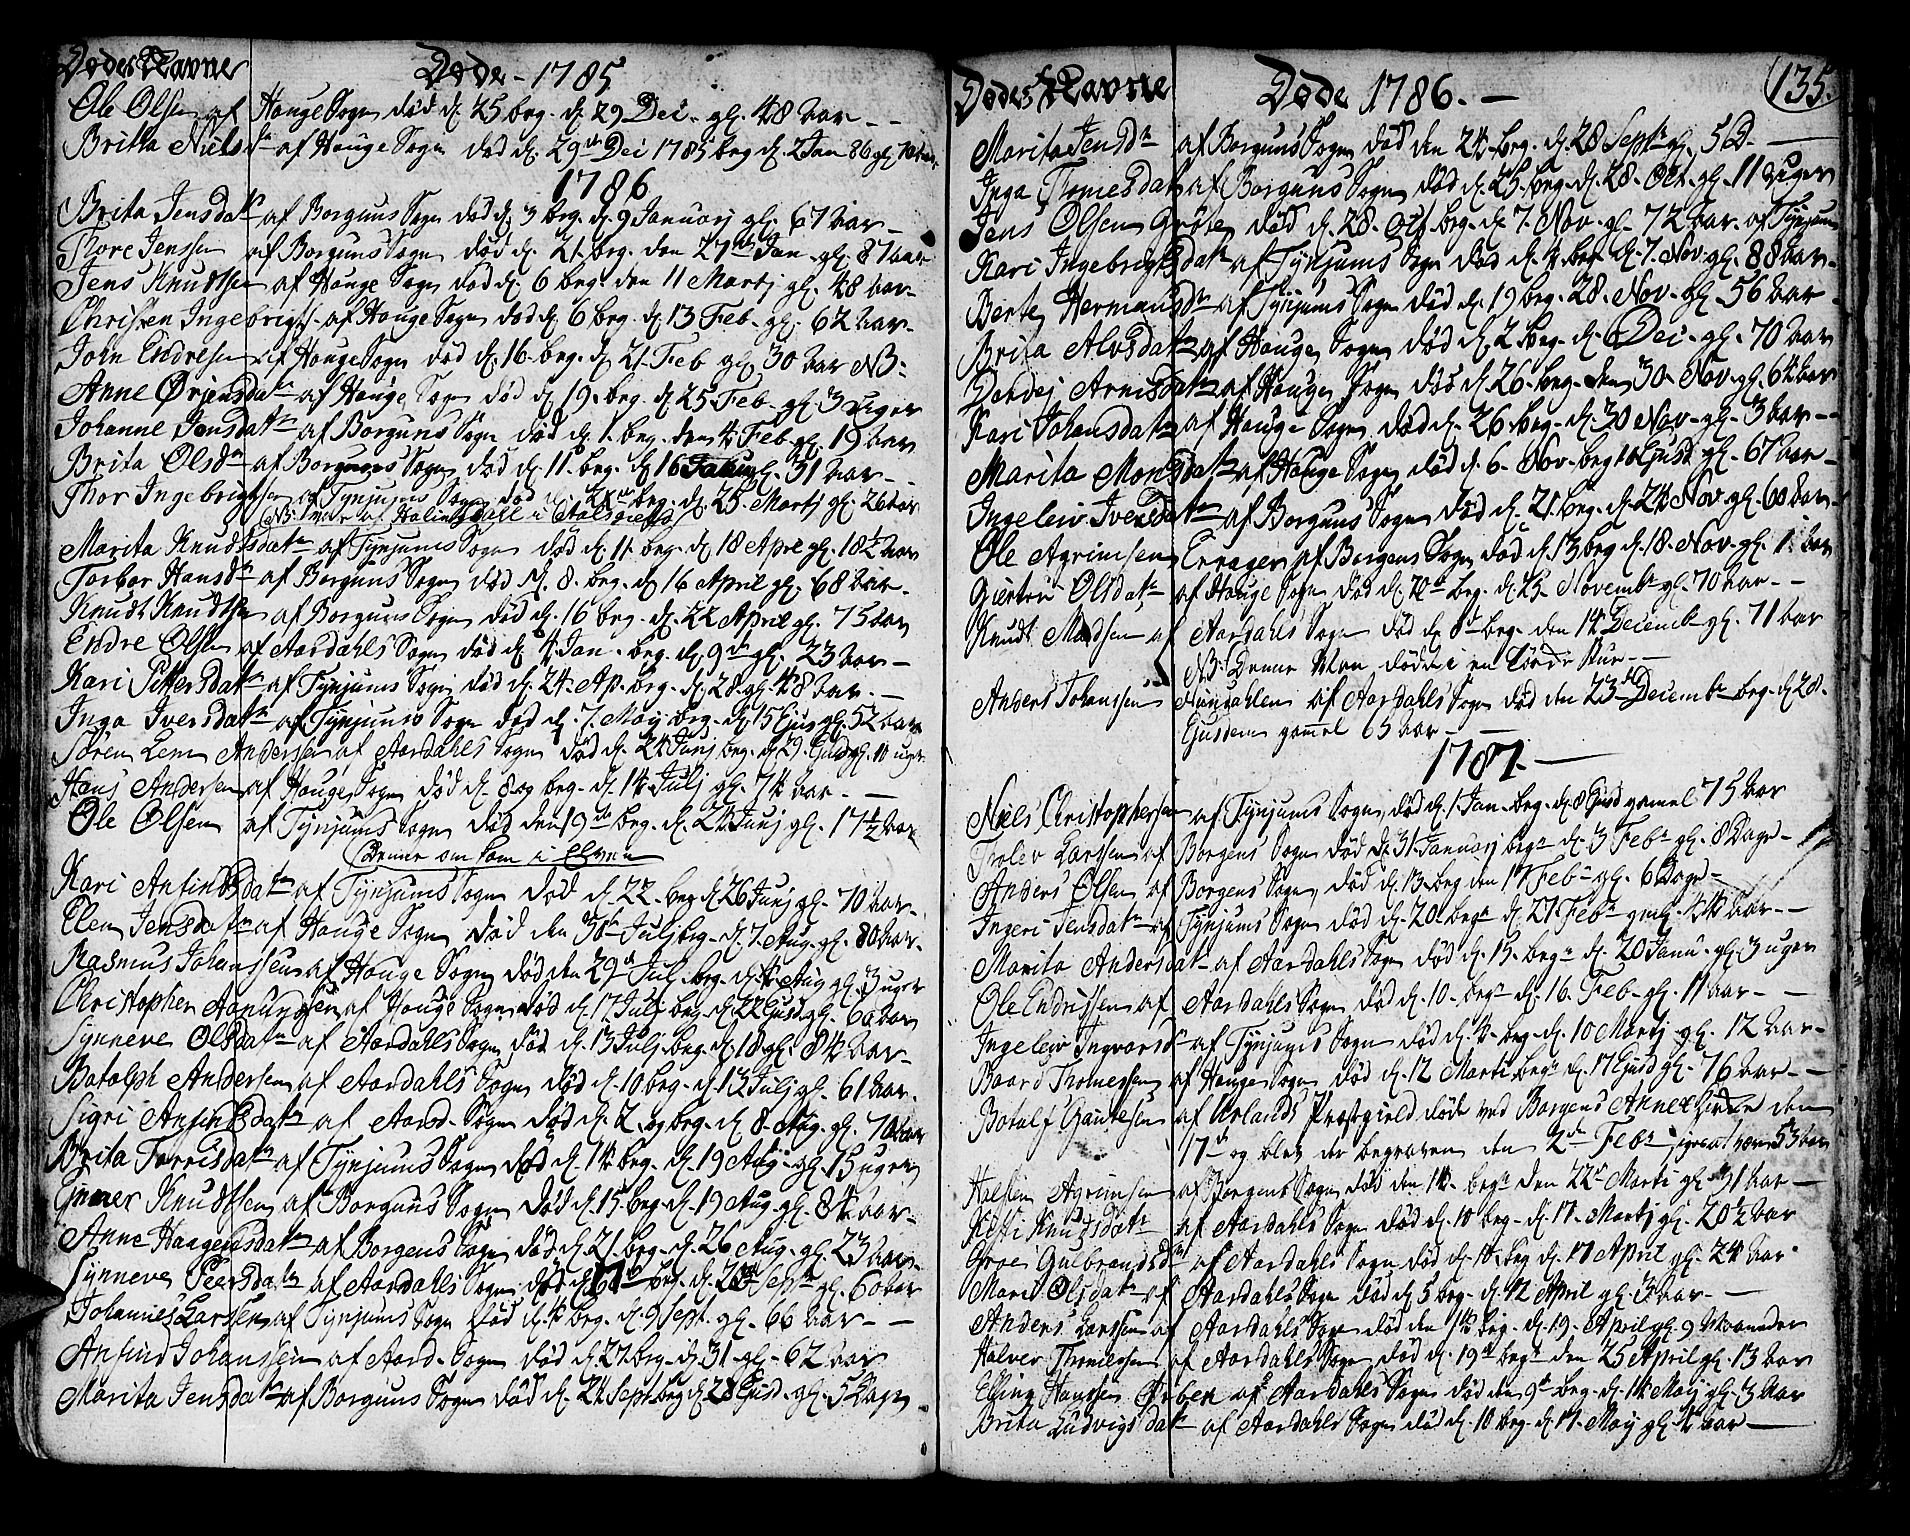 Dødes Navne Døde - 1785
Ole Olsen af Houge Sogn død d. 25 beg. d. 29 Dec. gl. 48 Aar - -
Britta Niels dr af Houge Sogn død d. 29de Dec 1785 beg d. 2 Jan 86 gl. 70 Aar
1786
Brita Jensdatr af Borgunds Sogn død d. 3 beg. d. 9 Januarj gl. 67 Aar -
Thore Jenssen af Borguns Sogn død d. 21. beg. den 27de Jan gl. 87 Aar
Jens Knudtsen af Houge Sogn død d. 6 beg. den 11 Martj gl. 48 Aar -
Christen Ingebrigts. af Houge Sogn død d. 6 beg. d. 13 Feb. gl. 62 Aar -
John Endresen af Houge Sogn død d. 16. beg. d. 21 Feb gl. 30 Aar NB.
Anne Ørjensdatr af Houge Sogn død d. 19. beg. d. 25 Feb. gl. 3 Uger
Johanne Jensdatr af Borguns Sogn død d. 1. beg. den 4 Feb. gl. 19 Aar
Brita Olsdr af Borguns Sogn død d. 11. beg. d. 16 gl. 31 Aar -
Thor Ingebrigtsen af Tynjums Sogn død d. beg. d. 25 Martj gl. 26 Aar
NB. var af i
Marita Knudtsdatr af Tynjums Sogn død d. 11 beg. d. 18 Apr. gl. 18½ Aar
Torbor Hansdr af Borguns Sogn død d. 8. beg. d. 16 April gl. 68 Aar -
Knudt Knudtsen af Borguns Sogn død d. 16 beg. d. 22 April gl. 75 Aar
Endre Olsen af Aardahls Sogn død d. 4 Jan. beg. d. 9de gl. 23 Aar -
Kari Pittersdatr af Tynjums Sogn død d. 24. Ap. beg. d. 28. gl. 48 Aar. -
Inga Iversdatr af Tynjums Sogn død d. 7. Maij beg. d. 15 Ejus gl. 52 Aar
Søren Lem Andersen af Aardahls Sogn død d. 24 Junj beg. d. 29. gl. uger
Hans Andersen af Houge Sogn død d. 8 og beg. d. 14 Julj gl. 74 Aar. -
Ole Olsen af Tynjums Sogn død den 19de beg. d. 24 Junj gl. 17½ Aar
Denne om kom i Elven
Kari Anfindsdatr af Tynjums Sogn død d. 22. beg. d. 26 Junj gl. 70 Aar.
Elen Jensdatr af Houge Sogn død den Julj beg. d. 7. Aug. gl. 80 Aar.
Rasmus Johanssen af Houge Sogn død den 29de Jul. beg. d. 4 Aug gl. 3 uger
Christopher Aamundsen af Houge Sogn død d. 17 Julj beg. d. 22 Ejusd. gl. 60 Aar
Synneve Olsdatr af Aardahls Sogn død d. 13 Julj beg. d. 18. gl. 84 Aar -
Botolph Andersen af Aardahls Sogn død d. 10 beg. d. 13 Julj gl. 61 Aar.
Sigri Anfindsdatr af Aard. Sogn død d. 2. og beg. d. 8. Aug. gl. 70 Aar
Brita Torrisdatr af Tynjums Sogn død d. 14 beg. d. 19 Aug. gl. 15 ugen
Knudtsen af Borguns Sogn død d. 15 beg. d. 19 Aug. gl. 84 Aar -
Anne Haagensdatr af Borgens Sogn død d. 21. beg. d. 26 Aug. gl. 23 Aar -
Synneve Peersdatr af Aardahls Sogn død d. 17 beg. d. Septr gl. 60 Aar
Johannes Larsen af Tynjums Sogn død d. 4 beg. d. 9 Sept. gl. 66 Aar - -
Anfind Johanssen af Aard. Sogn død d. 27. beg. d. 31 gl. 62 Aar
Marita Jensdatr af Borguns Sogn død d. 24 Sept. beg d. 28 Ejusd. gl. 5 Dage
Dødes Navne Døde 1786. - 135.
Marita Jensdr af Borguns Sogn død den 24. beg. d. 28 Septr gl. 5 D. -
Inga Thomesdatr af Borguns Sogn død d. 25. beg. d. 28. Oct. gl. 11 Uger
Jens Olsen Grøte død d. 28. Oct beg. d. 7. Nov. gl. 72 Aar. af Tynjum
Kari Ingebrigtsdatr af Tynjums Sogn død d. 4 beg. d. 7. Nov. gl. 88 Aar -
Berte Hermansdr af Tynjums Sogn død d. 19 beg. 28. Nov. gl. 56 Aar -
Brita Alvsdatr af Houge Sogn død d. 2 beg. d. Dec. gl. 70 Aar
Dordej Arnisdatr af Houge Sogn død d. 26 beg. den 30 Nov. gl. 64 Aar
Kari Johansdatr af Houge Sogn død d. 26. beg. d. 30 Nov. gl. 3 Aar -
Marita Monsdatr af Houge Sogn død d. 6. Nov. beg. 10 Ejusd gl. 67 Aar -
Ingelev Iversdatr af Borguns Sogn død d. 21. beg. d. 24 Nov. gl. 60 Aar -
Ole Agrimsen af Borgens Sogn død d. 13 beg d. 18. Nov. gl. 1 Aar
Giertru Olsdatr af Houge Sogn død d. beg. d. 25. Novembr gl. 70 Aar. -
Knudt Madsen af Aardahls Sogn død d. 8de beg. den 14 Decembr gl. 71 Aar
NB. Denne Man døde i en - -
Anders Johanssen af Aardahls Sogn død den 23de Decembr beg. d. 28.
Ejusdem gammel 65 Aar - -
1787. -
Niels Christophersen af Tynjums Sogn, død d. 1 Jan. beg. d. 8 Ejusd gamel 75 Aar
Tholev Larssen af Borgens Sogn død d. 31 Januarj begr d. 3 Febr gl. 8 Dage -
Anders Olsen af Borgens Sogn, død d. 13. beg den 17 Febr gl. 6 Dage -
Ingeri Jensdatr af Tynjums Sogn død d. 20. begr d. 27 Febr gml. 44 Aar - -
Marita Andersdatr af Aardahls Sogn død d. 15. begr d. 20 Janu. gl. 3 uger
Ole Endressen af Aardahls Sogn død d. 10. begr d. 16. Feb. gl. 11 Aar - -
Ingelew Ingvarsdr af Tynjums Sogn død d. 4. beg. d. 10 Martj gl. 12 Aar -
Baard Thomessen af Houge Sogn død d. 12 Marti begr d. 17 Ejusd gl. 76 Aar - -
Botolf Gautesen af Urlands Præstgield døde ved Borgens Annex den
17de og blev der begraven den 2de Febr 53 Aar
Halsten Agrimsen af Borgens Sogn død den 14. begr den 22de Marti gl. 31 Aar -
Knutsdatr af Aardahls Sogn død d. 10 beg. d. 17. Martj gl. 20½ Aar
Groe Gulbrandsdr af Aardahls Sogn død d. 10. beg d. 17 April gl. 24 Aar.
Marit Olsdatr af Aardahls Sogn død d. 5 beg. d. 12 April gl. 3 Aar. -
Anders Larssen af Aardahls Sogn død den 14 beg. d. 19. April gl. 9 Maaneder
Halver Thomessen af Aardahls Sogn død d. 19de begr den 25 April gl. 13 Aar
Elling Hanssen af Aardahls Sogn død den 9de beg. d. 14 Maij gl. 3 Aar
Brita Ludvigsdatr af Aardahls Sogn død d. 10 beg. d. 17. Maij gl. 4 Aar -